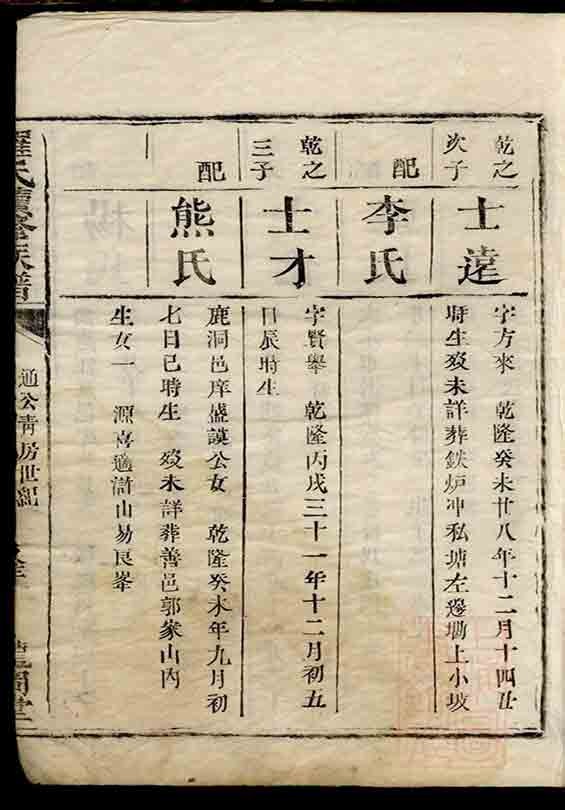 乾之
次子
士遠
字方來 乾隆癸未廿八年十二月十四丑
時生歿未詳葬鉄炉冲私塘左邊墈上小坡
配
李氏
乾之
三子
士才
字賢舉 乾隆丙戌三十一年十二月初五
日辰時生
配
熊氏
鹿洞邑庠盛謨公女 乾隆癸未年九月初
七日巳時生 歿未詳葬善邑郭家山內
生女一 源喜適滸山易良峯
羅氏 族譜
通公青房世紀